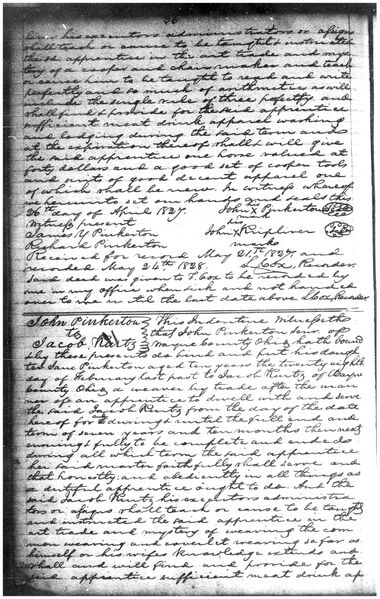 36
his executors administrators or assigns
shall teach or cause to be taught & instructed
the sd apprentice in the art trade and mys
tery of a cooper and chair maker and teach
or cause him to be taught to read and write
perfectly and so much of arithmetic as will
include the single rule of three perfectly and
shall find & provide for the said apprentice
sufficient meat drink apparel washing
and lodging during the said term and
at the expiration thereof shall will give
the said apprentice one horse valued at
forty dollars and a good set of cooper tools
and suits of good decent apparel one
of which shall be new. In witness whereof
we hereunto set our hands and seals this
26th day of April 1827. John X Pinkerton
Witness present his
James Y Pinkerton John X
Richard Pinkerton mark
Received for record May 21st 1827. and
recorded May 26th 1828. L Cox, Recorder.
Said Indr was given to L Cox to be recorded by
me in my office when sick and not handed
over to me until the last date above L Cox, Recorder
John Pinkerton } This Indenture Witnesseth
to } that John Pinkerton Senr of
Jacob Kurtz } Wayne County Ohio, hath bound
& by these presents do bind and put his daugh
ter Jane Pinkerton aged ten years the twenty eighth
day of February last past to Jacob Kurtz of Wayne
County Ohio, a weaver by trade after the man
ner of an apprentice to dwell with and serve
the said Jacob Kurtz from the day of the date
hereof for and during & until the full end and
term of seven years and ten months then next
ensuing fully to be complete and ended
during all which term the said apprentice
her said master faithfully shall serve and
that honestly and obediently in all things as a
dutiful apprentice ought to do. And the
said Jacob Kurtz his executors administra
tors or assigns shall teach or cause to be taught
and instructed the said apprentice in the
art trade and mystery of weaving the com
mon weaving and coverlet weaving so far as
himself or his wifes knowledge extends and
shall and will find and provide for the
said apprentice sufficient meat drink ap